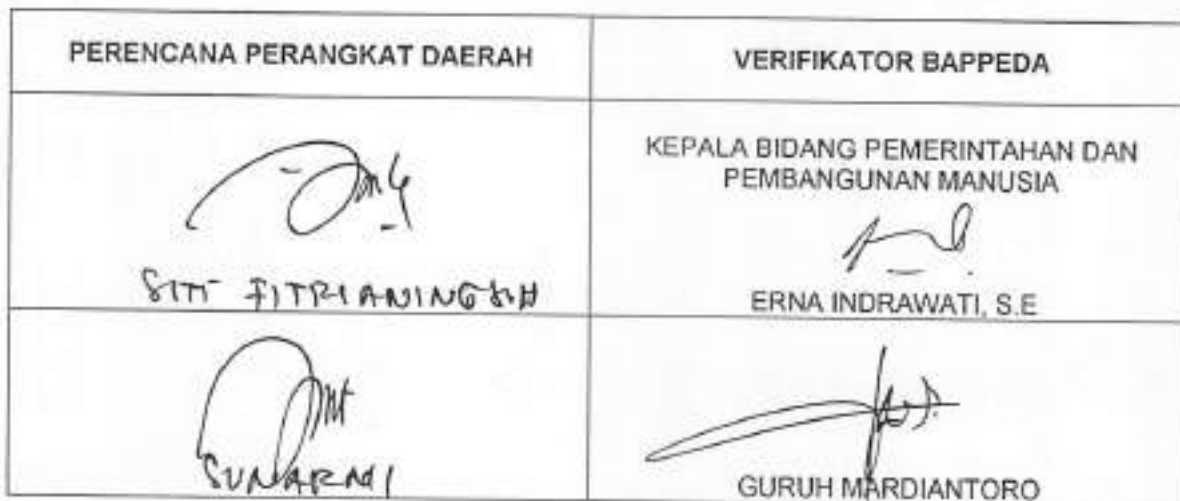 PERENCANA PERANGKAT DAERAH
VERIFIKATOR BAPPEDA
SITI FITRIANINGSIH
KEPALA BIDANG PEMERINTAHAN DAN
PEMBANGUNAN MANUSIA
ERNA INDRAWATI, S.E
SUNARMI
GURUH MARDIANTORO